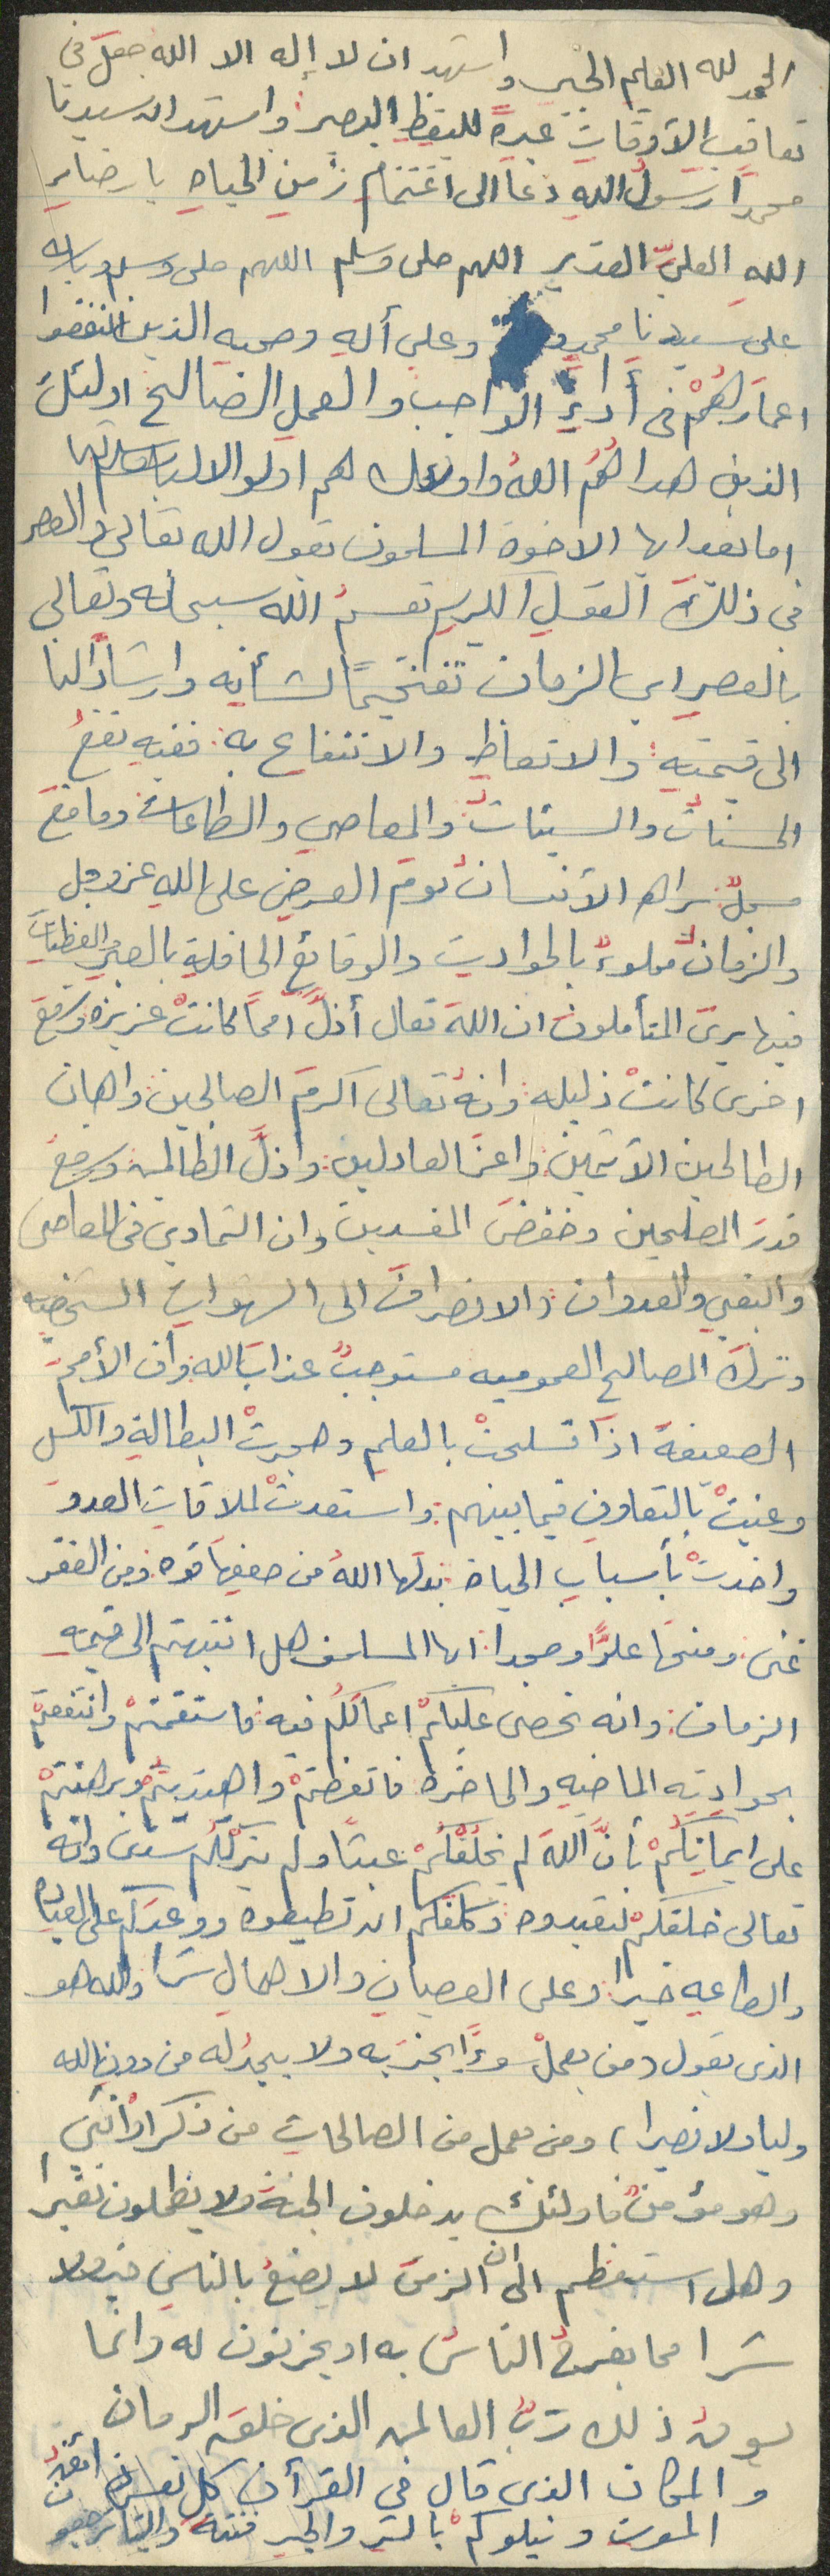 الحمد لله العليم الخبير واشهد ان لا إله الا الله جعل فى
تعاقب الأوقات عبرة لليقظ البصير واشهد ان سيدنا
محمدا رسول الله دعا الى اغتنام زمن الحياه بارضاء
الله العلي القدير اللهم صلى وسلم اللهم صلى وسلم وبارك
على سيدنا محمد وعلى أله وصحبه الذين انفقوا
اعمارهم فى أداء الواجب والعمل الصالح اولئك
الذين هداهم الله واولئك هم اولو الالباب
اما بعد ايها الاخوة المسلمون يقول الله تعالى والعصر
فى ذلك القول الكريم يقسم الله سبحانه وتعالى
بالعصر اى الزمان تفخيما لشأنه وارشادا لنا
الى قيمته والاتعاظ والانتفاع به ففيه تقع
الحسنات والسيئات والمعاصي والطاعات وما تقع
مسجل يراه الأنسان يوم العرض على الله عز وجل
والزمان مملوء بالحوادث والوقائع الحافلة بالعبر والعظات
فيها يرى المتأملون ان الله تعال أذل امما كانت عزيزه ورفع
اخرى كانت ذليله وانه تعالى اكرم الصالحين واهان
الطالحين الآثمين واعز العادلين واذل الظالمين ورفع
قدر المصلحين وخفض المفسدين وان التمادي فى المعاصى
والبغي والعدوان والانصراف الى الشهوات الشخصيه
وترك المصالح العموميه مستوجب عذاب الله وأن الأمم
الضعيفة اذا تسلحت بالعلم وهجرت البطالة والكسل
وعنيت بالتعاون فيما بينهم واستعدت لملاقات العدو
واخذت بأسباب الحياة بدلها الله من ضعفها قوه ومن الفقر
غنى ومنحها علوا ومجدا ايها المسلمون هل انتبهتم الى قيمة
الزمان وانه تحصى عليكم اعمالكم فيه فاستقمتم وانتفعتم
بحوادثه الماضيه والحاضرة فاتعظتم واهتديتم وبرهنتم
على ايمانكم بأن الله لم يخلقكم عبثا ولم يترككم سدى وانه
تعالى خلقكم لتعبدوه وكلفكم ان تطيعوه ووعدكم على العباده
والطاعه خيرا وعلى العصيان والاهمال شرا والله هو
الذى يقول ومن يعمل سوءا يجز به ولا يجد له من دون الله
وليا ولا نصيرا) ومن يعمل من الصالحات من ذكر او أنثى
وهو مؤمن فاولئك يدخلون الجنة ولا يظلمون نقيرا
وهل استيقظتم الى ان الزمن لا يصنع بالناس خيرا ولا
شرا مما يفرح الناس به او يحزنون له وانما
يسوق ذلك رب العالمين الذى خلق الزمان
والمكان الذى قال فى القرآن كل نفس ذائقة
الموت ونبلوكم بالشر والخير فتنة والينا ترجعون